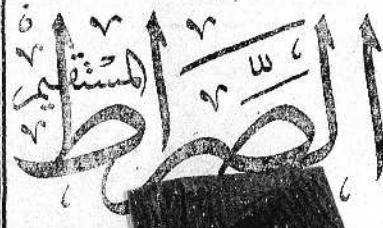 الصّراط
المستقيم